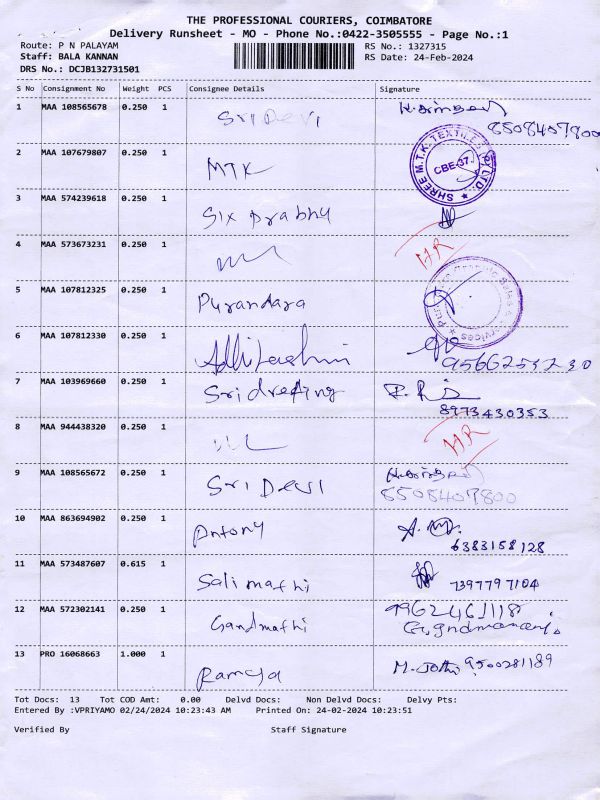 THE PROFESSIONAL COURIERS, COIMBATORE
Delivery Runsheet - MO - Phone No.:0422-3505555 - Page No.:1
Route: P N PALAYAM RS No.: 1327315
Staff: BALA KANNAN RS Date: 24-Feb-2024
DRS No.: DCJB132731501
S No Consignment No Weight PCS Consignee Details Signature
1 MAA 108565678 0.250 1 Sri Devi
8508409800
2 MAA 107679807 0.250 1 MTK SHREE M.T.K. TEXTILES (P) LTD. CBE-37.
3 MAA 574239618 0.250 1 Six Prabhu
4 MAA 573673231 0.250 1 HR
5 MAA 107812325 0.250 1 Purandara
6 MAA 107812330 0.250 1
7 MAA 103969660 0.250 1
8973430353
8 MAA 944438320 0.250 1 HR
9 MAA 108565672 0.250 1 Sri Devi
8508409800
10 MAA 863694902 0.250 1 Antony
6383158128
11 MAA 573487607 0.615 1 Salimathi 7397797104
12 MAA 572302141 0.250 1 Gandmathi 9962461118
13 PRO 16068663 1.000 1 Ramya 9500281189
Tot Docs: 13 Tot COD Amt: 0.00 Delvd Docs: Non Delvd Docs: Delvy Pts:
Entered By :VPRIYAMO 02/24/2024 10:23:43 AM Printed On: 24-02-2024 10:23:51
Verified By Staff Signature